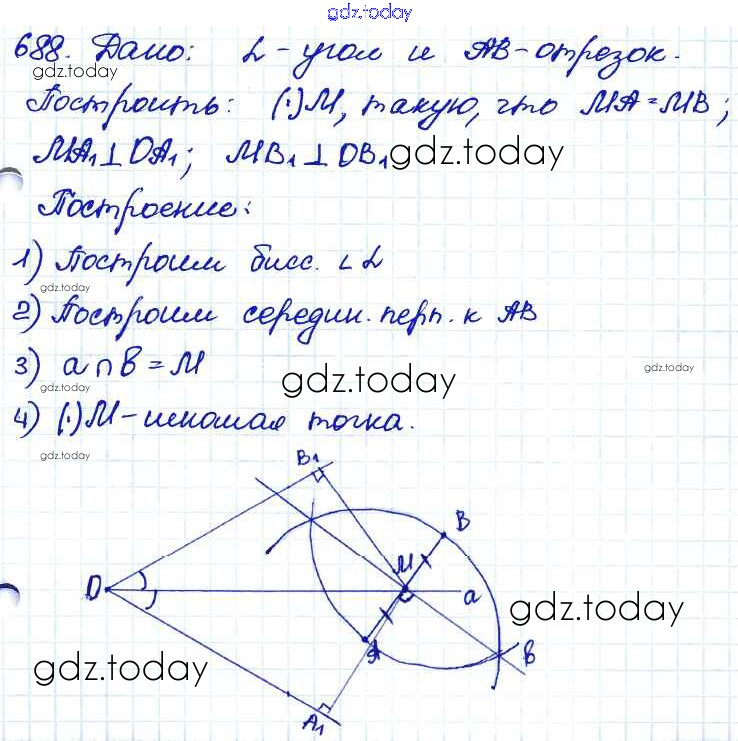 gdz.today
688. Дано: α - угол и AB - отрезок.
gdz.today
Построить: (·)M, такую, что MA = MB;
MA₁⊥DA₁; MB₁⊥DB₁ gdz.today
Построение:
1) Построим бисс. ∠α
gdz.today
2) Построим середин. перп. к AB
3) a∩b = M
gdz.today
gdz.today
gdz.today
4) (·)M - искомая точка.
gdz.today
B₁
B
D
M
a
gdz.today
A
b
gdz.today
A₁